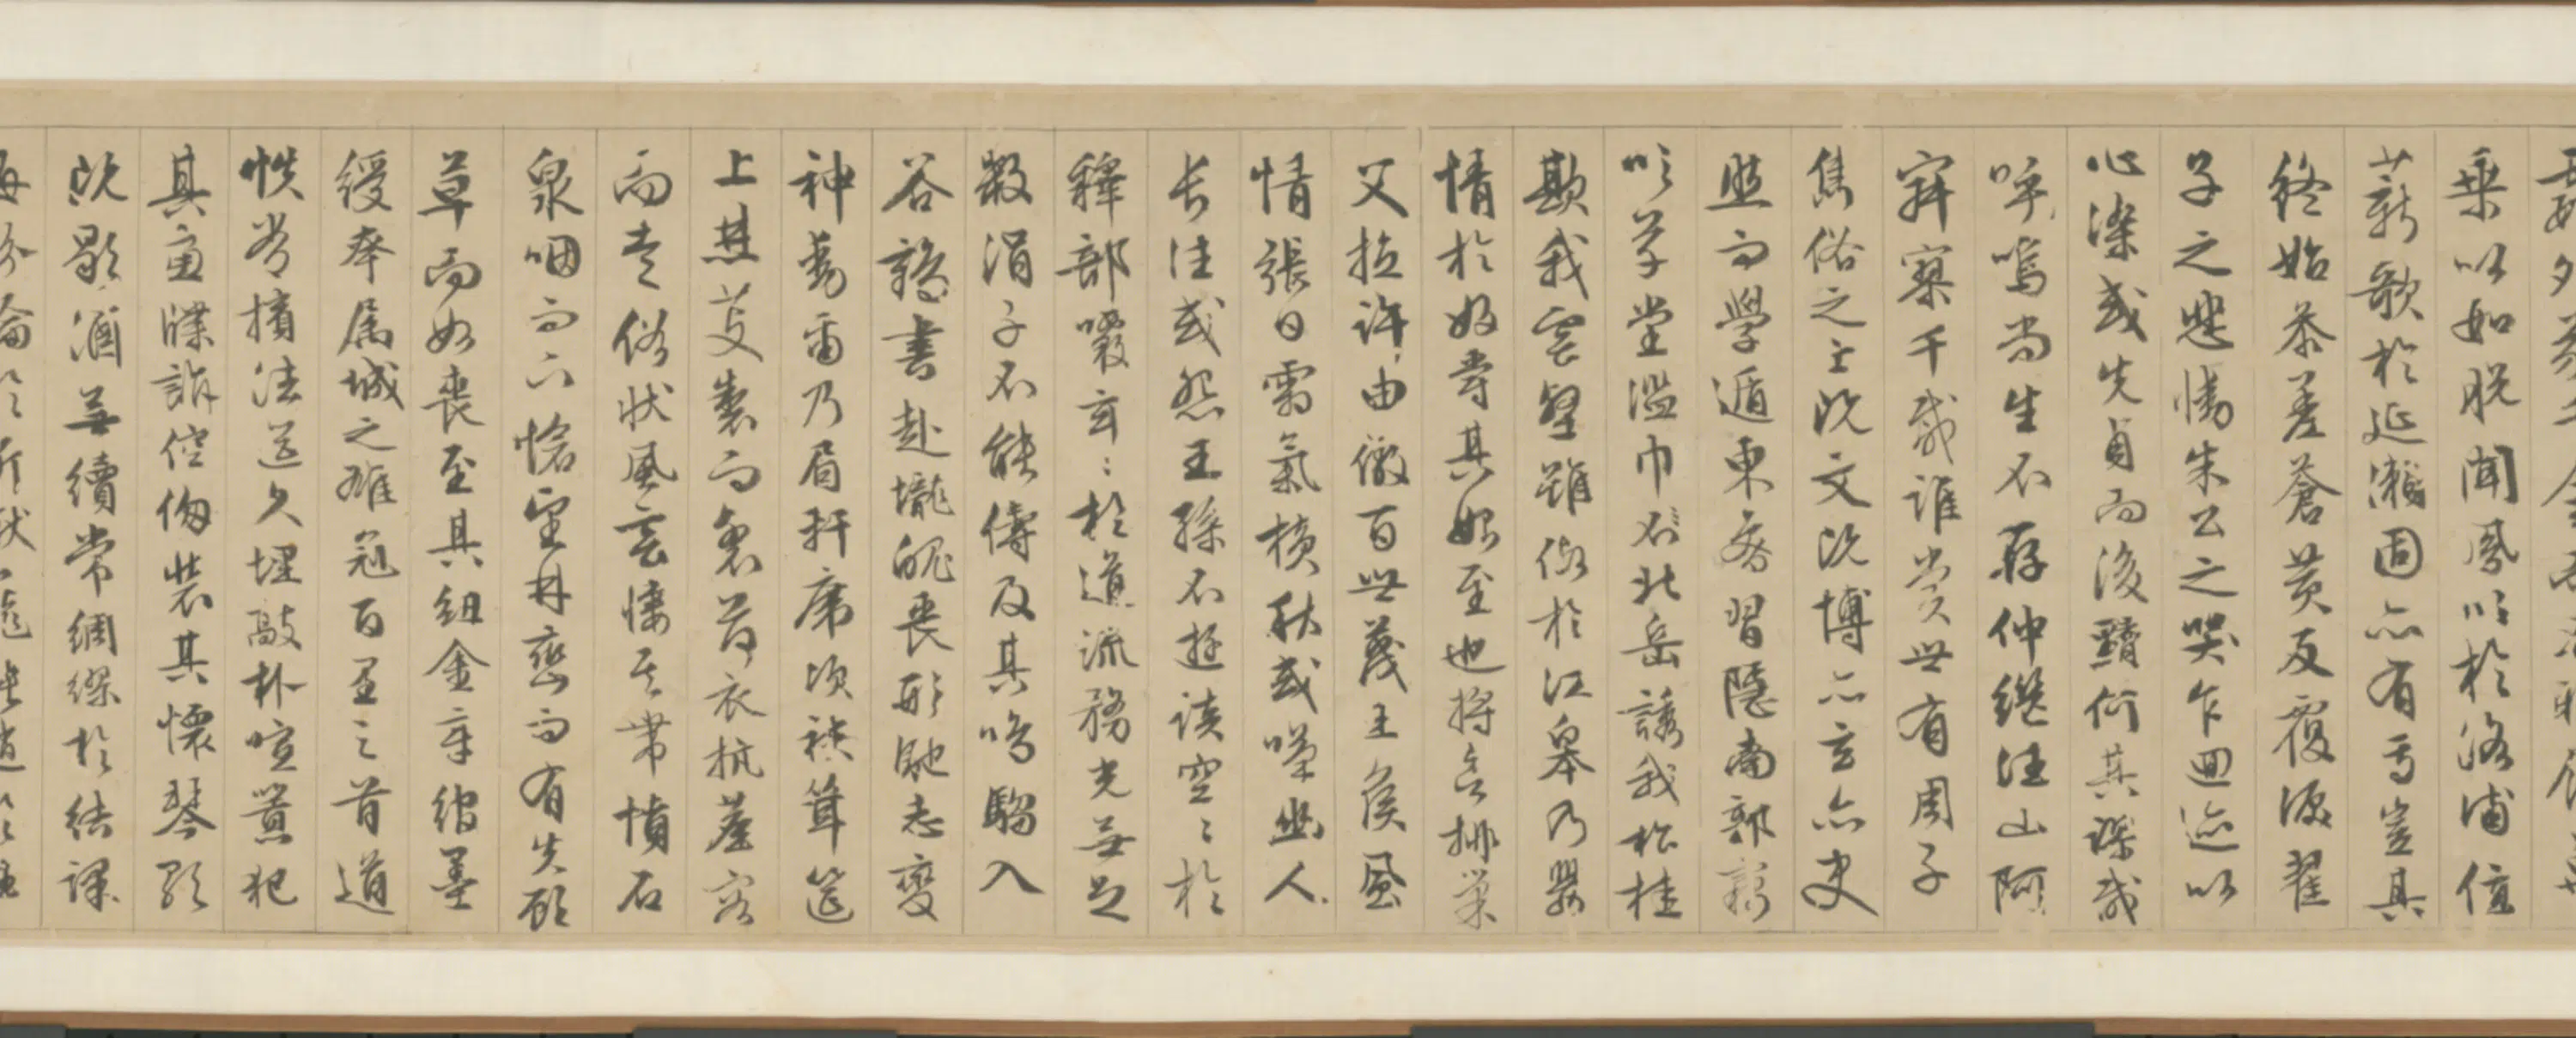 乘以如脫聞鳳吹於洛浦值
薪歌於延瀨固亦有焉豈其
終始參差蒼黃反覆淚翟
子之悲慟朱公之哭乍迴迹以
心染或先貞而後黷何其謬哉
呼嗚尚生不存仲繼往山阿
寂寥千載誰賞世有周子
雋俗之士既文既博亦玄亦史
然而學遁東魯習隱南郭竊
吹草堂濫巾不北岳誘我松桂
欺我雲壑雖假於江皋乃嬰
情於好爵其始至也將欲排巢
父拉許由傲百世蔑王侯風
情張日霜氣橫秋或嘆幽人
長往或怨王孫不遊談空〻於
釋部覈玄〻於道流務光無足
數涓子不能儔及其鳴騶入
谷鶴書赴壠魄喪形馳志變
神動爾乃眉軒席次袂聳筵
上焚芰製而裂荷衣抗塵容
而走俗狀風雲悽其帶憤石
泉咽而下愴望林巒而有失顧
草而如喪至其紐金章綰墨
綬奉屬城之雄冠百里之首道
帙嘗擯法筵久埋敲扑喧囂犯
其慮牒訴倥傯裝其懷琴歌
既斷酒無續常綢繆於結課
每紛綸於折獄